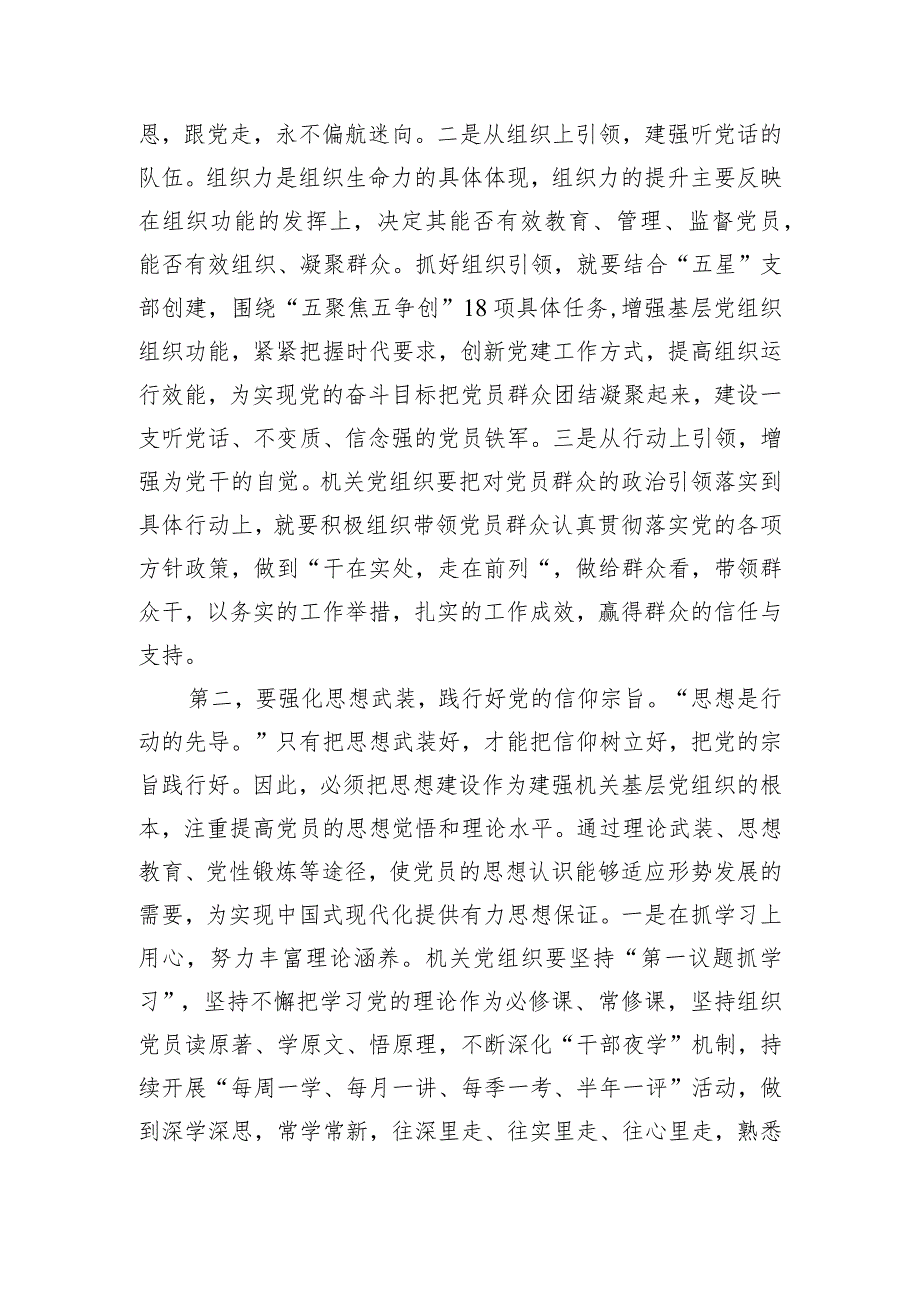 恩，跟党走，永不偏航迷向。二是从组织上引领，建强听党话的
队伍。组织力是组织生命力的具体体现，组织力的提升主要反映
在组织功能的发挥上，决定其能否有效教育、管理、监督党员，
能否有效组织、凝聚群众。抓好组织引领，就要结合“五星”支
部创建，围绕“五聚焦五争创”18 项具体任务,增强基层党组织
组织功能，紧紧把握时代要求，创新党建工作方式，提高组织运
行效能，为实现党的奋斗目标把党员群众团结凝聚起来，建设一
支听党话、不变质、信念强的党员铁军。三是从行动上引领，增
强为党干的自觉。机关党组织要把对党员群众的政治引领落实到
具体行动上，就要积极组织带领党员群众认真贯彻落实党的各项
方针政策，做到“干在实处，走在前列“，做给群众看，带领群
众干，以务实的工作举措，扎实的工作成效，赢得群众的信任与
支持。
第二，要强化思想武装，践行好党的信仰宗旨。“思想是行
动的先导。”只有把思想武装好，才能把信仰树立好，把党的宗
旨践行好。因此，必须把思想建设作为建强机关基层党组织的根
本，注重提高党员的思想觉悟和理论水平。通过理论武装、思想
教育、党性锻炼等途径，使党员的思想认识能够适应形势发展的
需要，为实现中国式现代化提供有力思想保证。一是在抓学习上
用心，努力丰富理论涵养。机关党组织要坚持“第一议题抓学
习”，坚持不懈把学习党的理论作为必修课、常修课，坚持组织
党员读原著、学原文、悟原理，不断深化“干部夜学”机制，持
续开展“每周一学、每月一讲、每季一考、半年一评”活动，做
到深学深思，常学常新，往深里走、往实里走、往心里走，熟悉